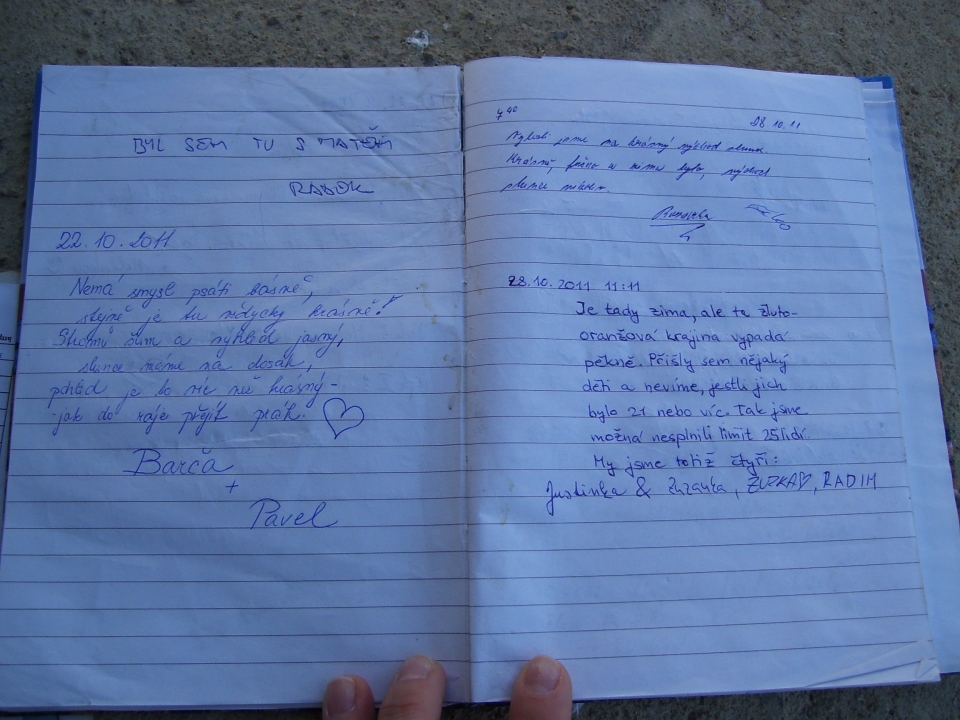 BYL SEM TU S MATĚJEM
RADEK
22.10.2011
Nemá smysl psáti básně,
stejně je tu vždycky krásně!
Stromů šum a výhled jasný,
slunce máme na dosah,
pohled je to víc než krásný -
-jak do ráje přejít práh.
Barča
+
Pavel
7 40 28.10.11
Vylezli jsme na krásný východ slunce.
Krásně, fučno a zima bylo, východ
slunce nikde.
28.10.2011 11:11
Je tady zima, ale ta žluto-
oranžová krajina vypadá
pěkně. Přišly sem nějaký
děti a nevíme, jestli jich
bylo 21 nebo víc. Tak jsme
možná nesplnili limit 25lidí.
My jsme totiž čtyři:
Justinka & Zuzanka, ZUZKA, RADIM